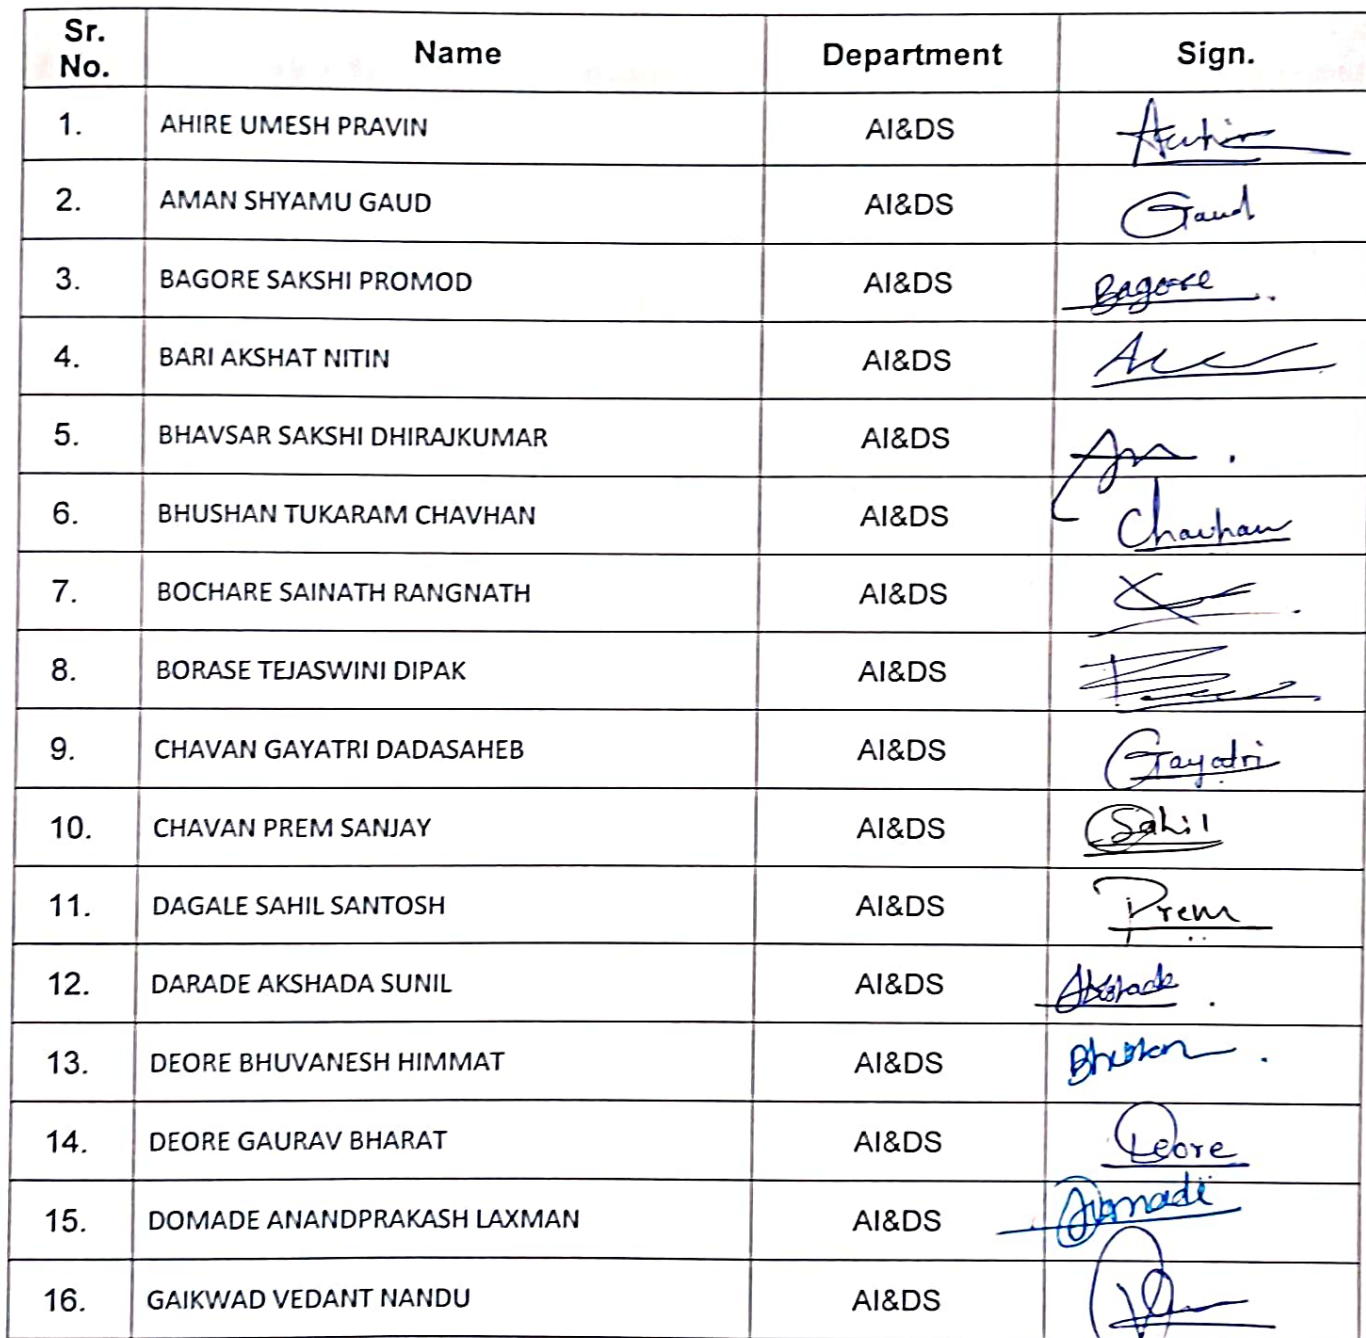 Sr. No. Name Department Sign.
1. AHIRE UMESH PRAVIN AI&DS
2. AMAN SHYAMU GAUD AI&DS Gaud
3. BAGORE SAKSHI PROMOD AI&DS Bagore
4. BARI AKSHAT NITIN AI&DS
5. BHAVSAR SAKSHI DHIRAJKUMAR AI&DS
6. BHUSHAN TUKARAM CHAVHAN AI&DS Chavhan
7. BOCHARE SAINATH RANGNATH AI&DS
8. BORASE TEJASWINI DIPAK AI&DS
9. CHAVAN GAYATRI DADASAHEB AI&DS Gayatri
10. CHAVAN PREM SANJAY AI&DS Sahil
11. DAGALE SAHIL SANTOSH AI&DS Prem
12. DARADE AKSHADA SUNIL AI&DS
13. DEORE BHUVANESH HIMMAT AI&DS
14. DEORE GAURAV BHARAT AI&DS Deore
15. DOMADE ANANDPRAKASH LAXMAN AI&DS
16. GAIKWAD VEDANT NANDU AI&DS